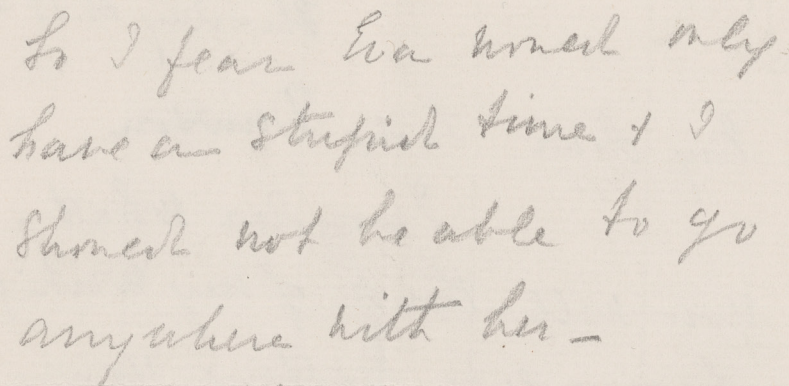 So I fear Eva would only
have a stupid time & I
should not be able to go
anywhere with her –